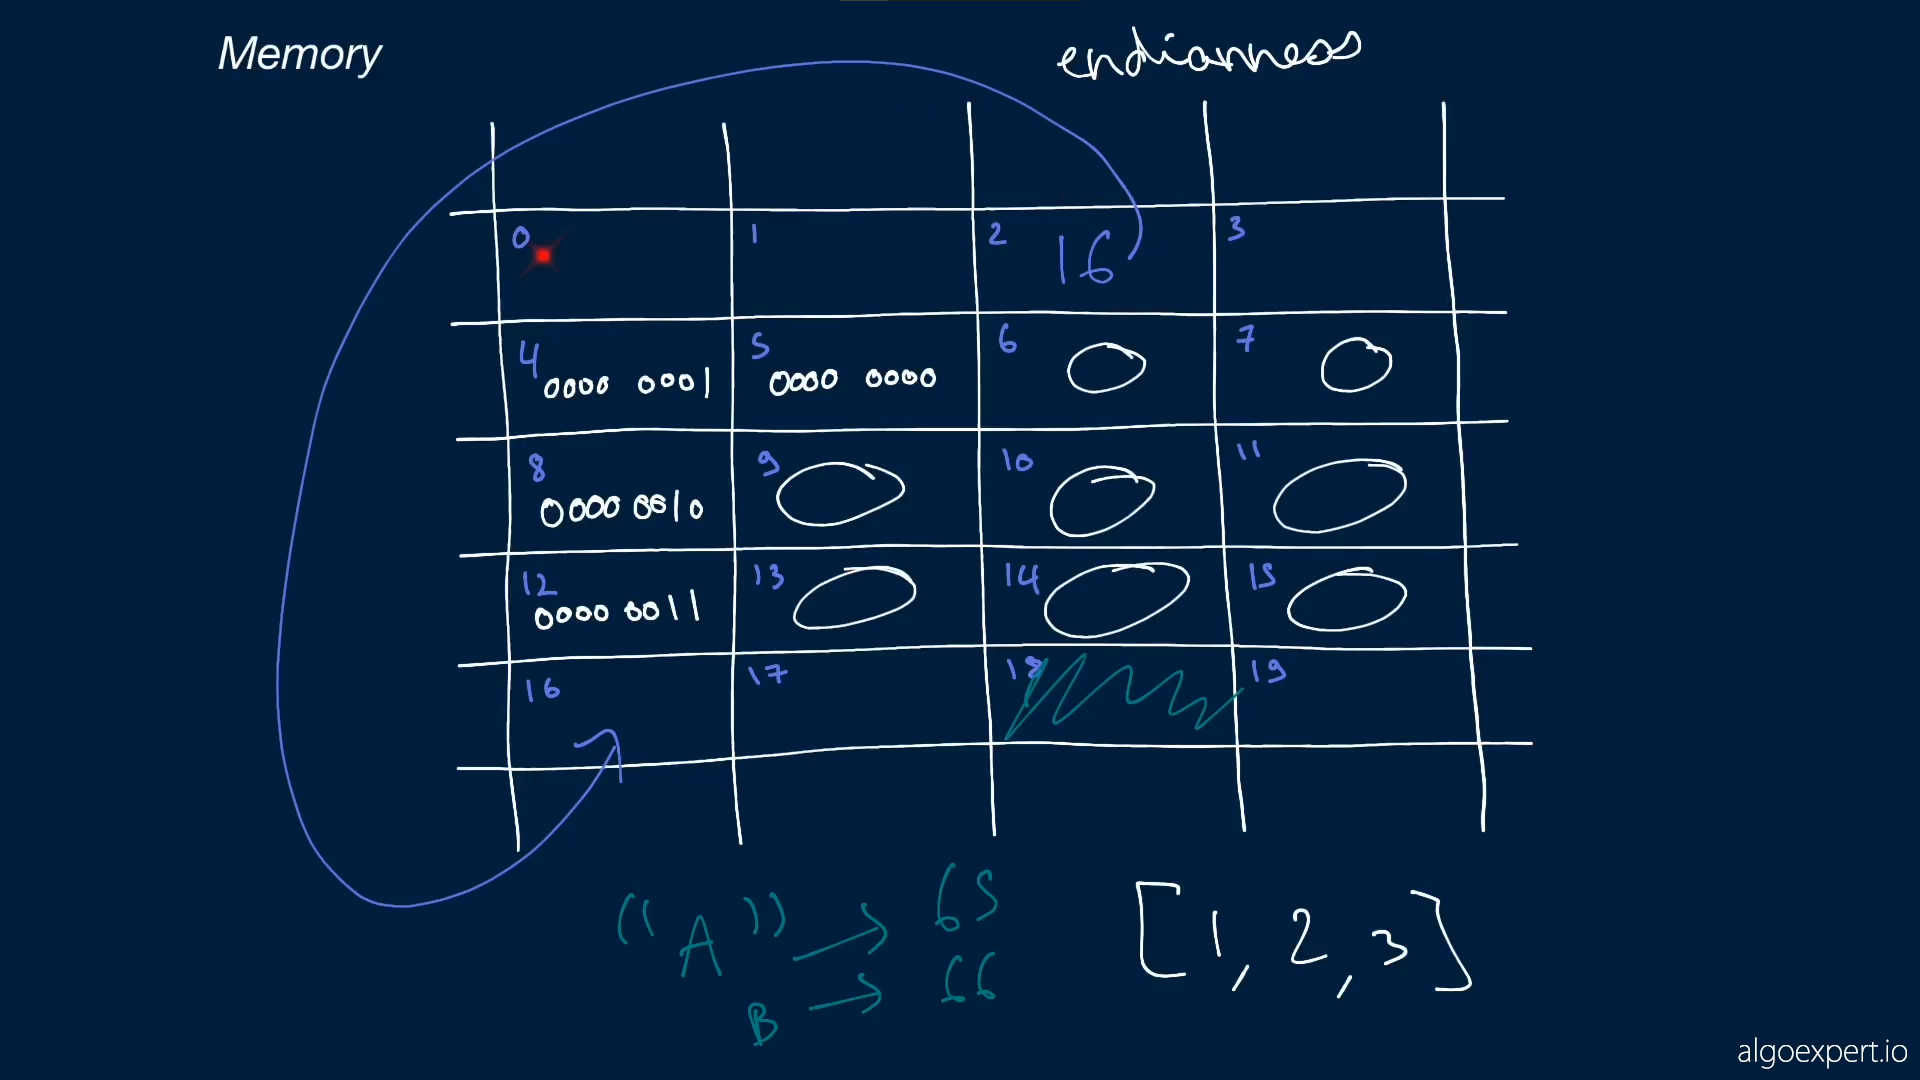 Memory
endianness
0 1 2 16 3
4 0000 0001 5 0000 0000 6 7
8 0000 0010 9 10 11
12 0000 0011 13 14 15
16 17 18 19
"A" → 65
B → 66
[1, 2, 3]
algoexpert.io